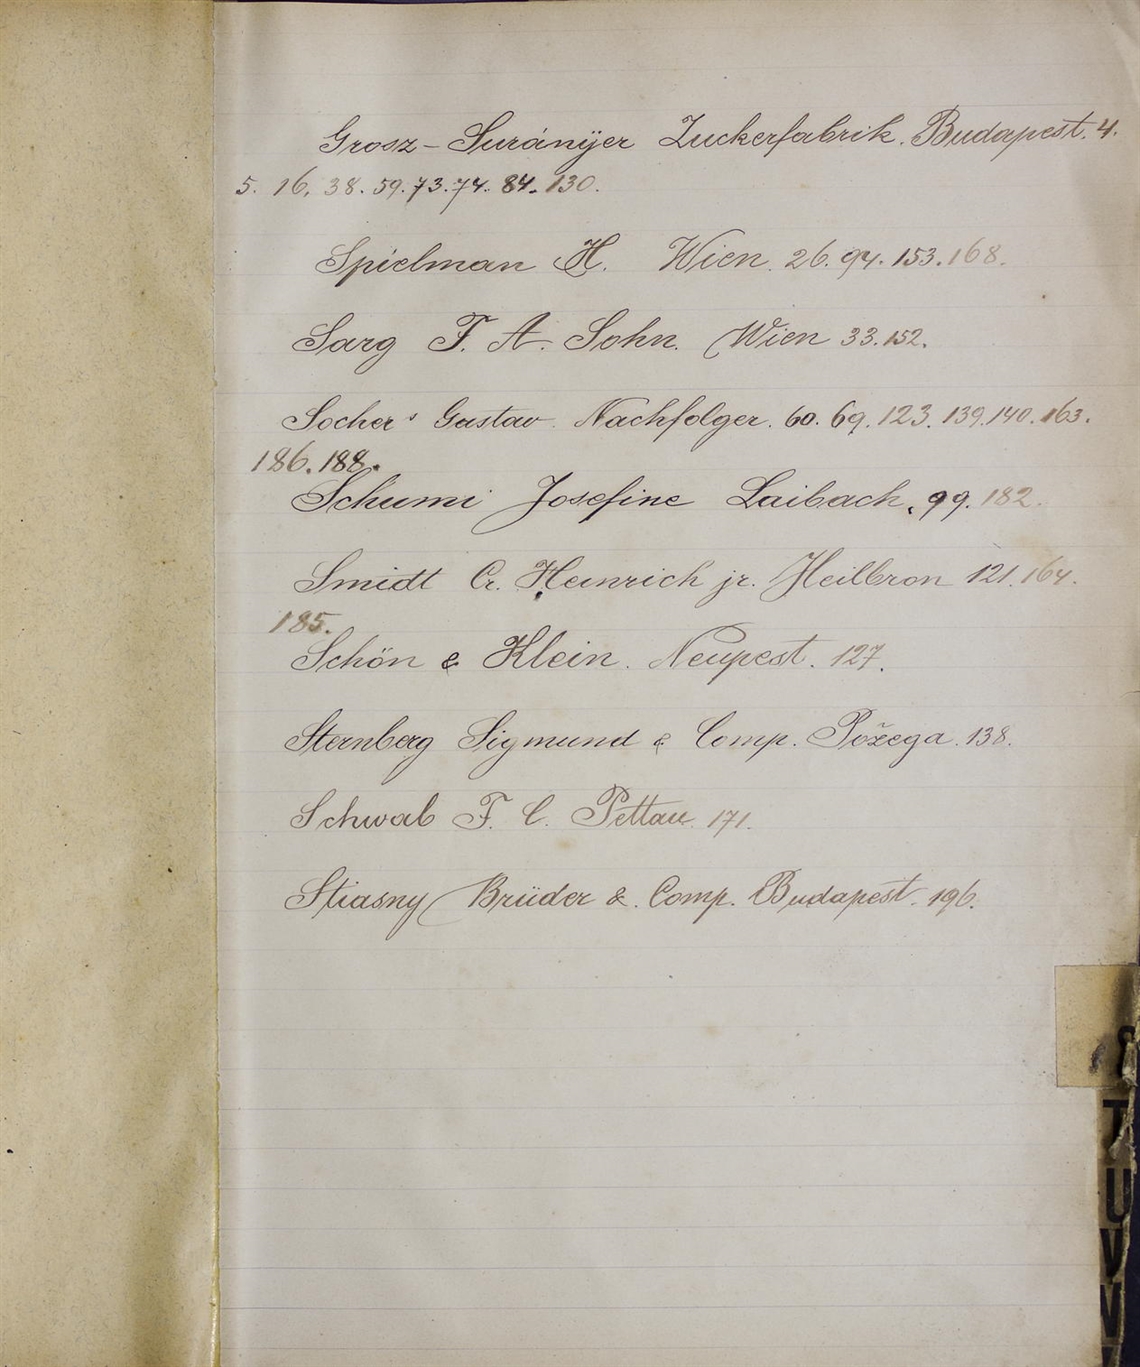 Grosz - Surányer Zuckerfabrik. Budapest. 4.
5. 16. 38. 59. 73. 74. 84. 130.
Spielman H. Wien. 26. 94. 153. 168.
Sarg F. A. Sohn. Wien 33. 152.
Socher's Gustav Nachfolger. 60. 69. 123. 139. 140. 163.
186. 188.
Schumi Josefine Laibach. 99. 182.
Smidt Cr. Heinrich jr. Heilbron 121. 164.
185.
Schön & Klein. Neupest. 127.
Sternberg Sigmund & Comp. Požega. 138.
Schwab F. C. Pettau. 171.
Stiasny Brüder & Comp. Budapest. 196.
S
T
U
V